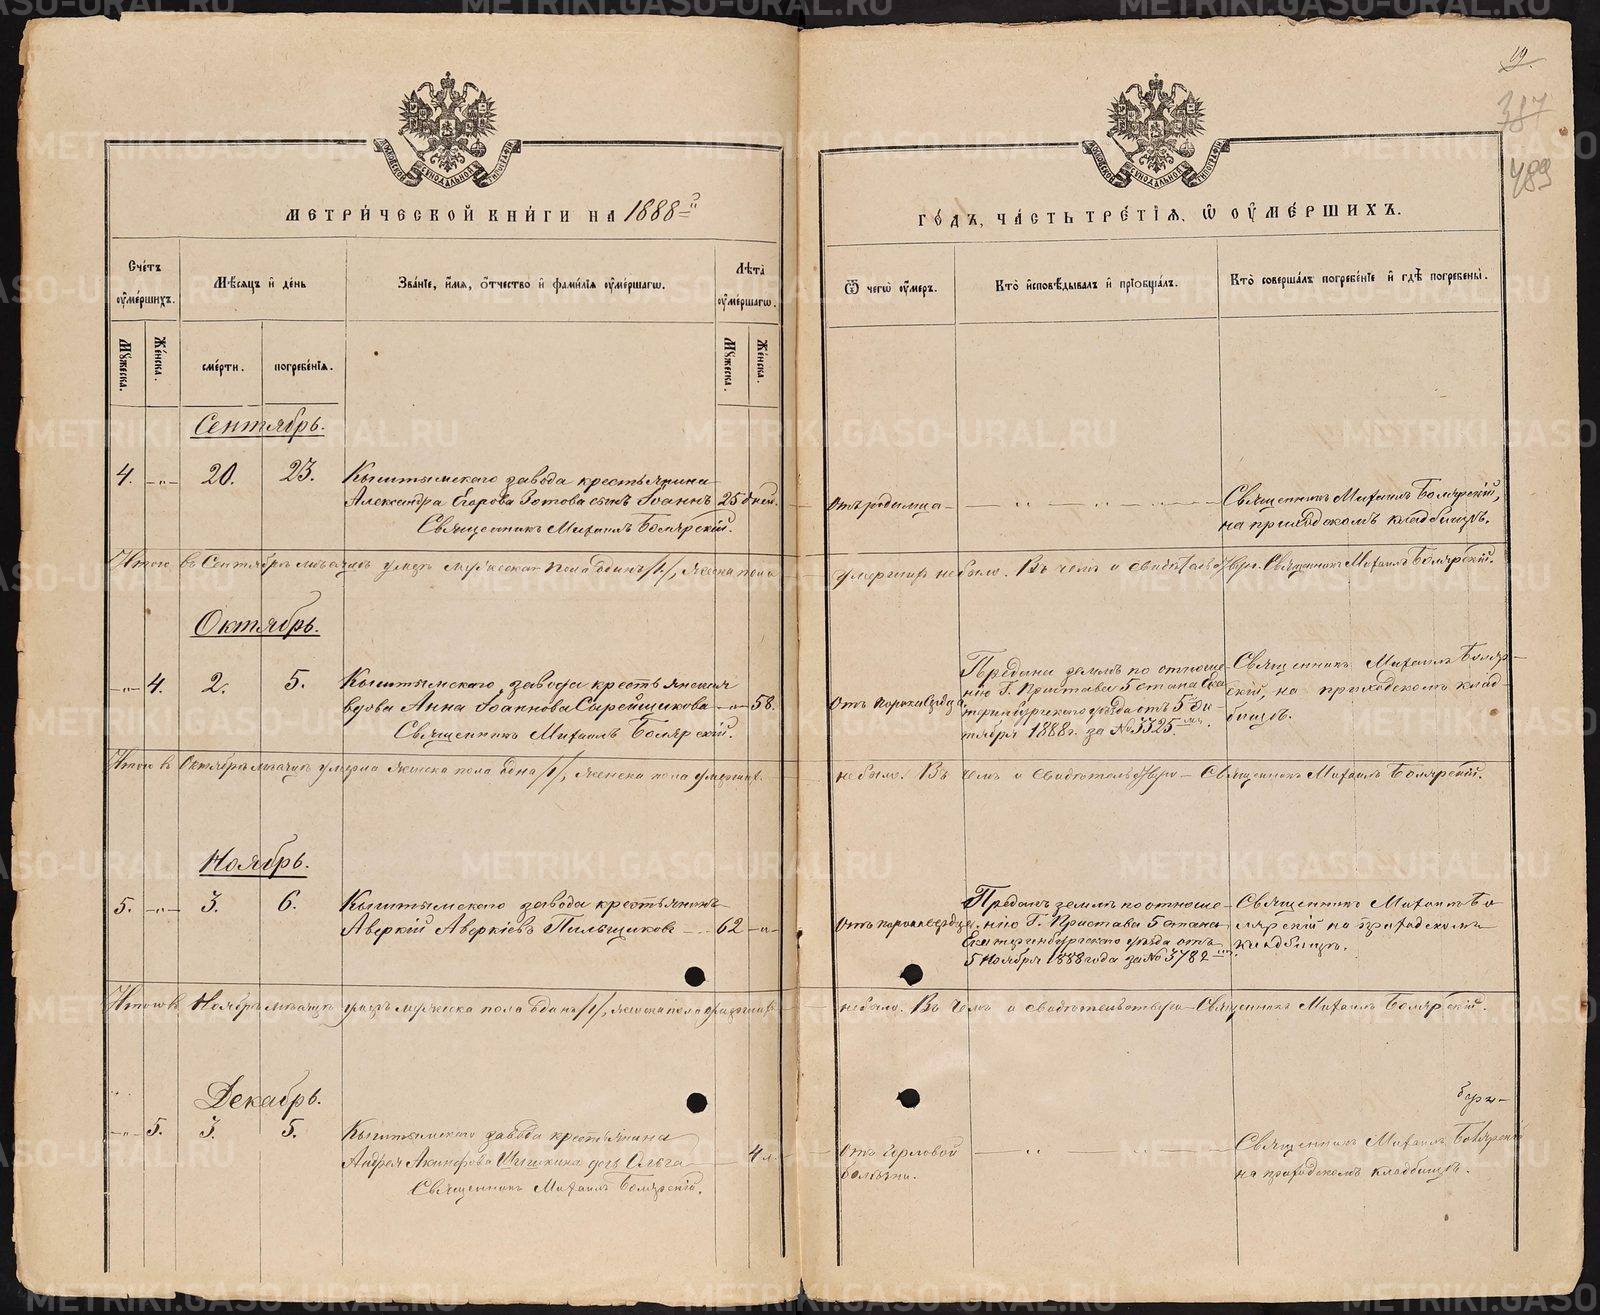 19.
387
489
МОСКОВСКОЙ СѴНОДАЛЬНОЙ ТИПОГРАФІИ
МЕТРИ́ЧЕСКОЙ КНИ́ГИ НА 1888-й
Сче́тъ ᲂу҆ме́ршихъ.
Мѣ́сяцъ и҆ де́нь
Зва́нїе, и҆́мя, ѻ҆́тчество и҆ фами́лїя ᲂу҆ме́ршагѡ.
Лѣ́та ᲂу҆ме́ршагѡ.
Мꙋ́жеска.
Же́нска.
сме́рти.
погребе́нїя.
Мꙋ́жеска.
Же́нска.
Сентябрь.
4. -„- 20. 23. Кыштымскаго завода крестьянина
Александра Егорова Зотова сынъ Іоаннъ 25 дней.
Священникъ Михаилъ Боярскій.
Итого въ Сентябрѣ мѣсяцѣ умеръ мужеска пола одинъ /1/, женска пола
Октябрь.
-„- 4. 2. 5. Кыштымскаго завода крестьянская
вдова Анна Іоаннова Сырейщикова -„- 58.
Священникъ Михаилъ Боярскій.
Итого въ Октябрѣ мѣсяцѣ умерла женска пола одна /1/, женска пола умершихъ
Ноябрь.
5. -„- 3. 6. Кыштымскаго завода крестьянинъ
Аверкій Аверкіевъ Пильщиковъ 62 -„-
Итого въ Ноябрѣ мѣсяцѣ умеръ мужеска пола одинъ /1/, женска пола умершихъ
Декабрь.
-„- 5. 3. 5. Кыштымскаго завода крестьянина
Андрея Акинфова Шишкина дочь Ольга 4 л.
Священникъ Михаилъ Боярскій.
МОСКОВСКОЙ СѴНОДАЛЬНОЙ ТИПОГРАФІИ
ГО́ДЪ, ЧА́СТЬ ТРЕ́ТЇЯ, Ѽ ОУ҆МЕ́РШИХЪ.
Ѿ чегѡ̀ ᲂу҆́меръ.
Кто̀ и҆сповѣ́дывалъ и҆ прїѻбща́лъ.
Кто̀ соверша́лъ погребе́нїе и҆ гдѣ̀ погребены̀.
Отъ родимца
Священникъ Михаилъ Боярскій,
на приходскомъ кладбищѣ.
умершихъ не было. Въ чемъ и свидѣтельствую. Священникъ Михаилъ Боярскій.
Отъ порока сердца
Предана землѣ по отноше-
нію Г. Пристава 5 стана Ека
теринбургскаго уѣзда отъ 5 Ок-
тября 1888 г. за № 3325-мъ.
Священникъ Михаилъ Бояр-
скій, на приходскомъ клад-
бищѣ.
не было. Въ чемъ и свидѣтельствую – Священникъ Михаилъ Боярскій.
Отъ порока сердца.
Преданъ землѣ по отноше-
нію Г. Пристава 5 стана
Екатеринбургскаго уѣзда отъ
5 Ноября 1888 года за № 3782-мъ.
Священникъ Михаилъ Бо
ярскій на приходскомъ
кладбищѣ.
не было. Въ чемъ и свидѣтельствую – Священникъ Михаилъ Боярскій.
Отъ горловой
болѣзни.
Священникъ Михаилъ Боярскій
на приходскомъ кладбищѣ.
METRIKI.GASO-URAL.RU